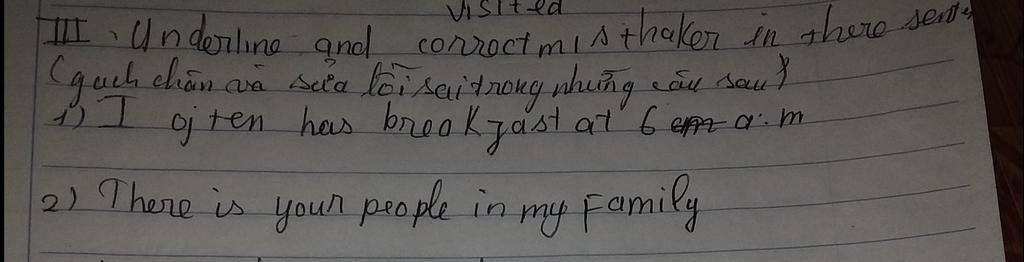 visited
III. Underline and corroct misthaker in there sente
(gạch chân và sửa lỗi sai trong những câu sau)
1) I ojten has breakjast at 6 a.m
2) There is your people in my Family